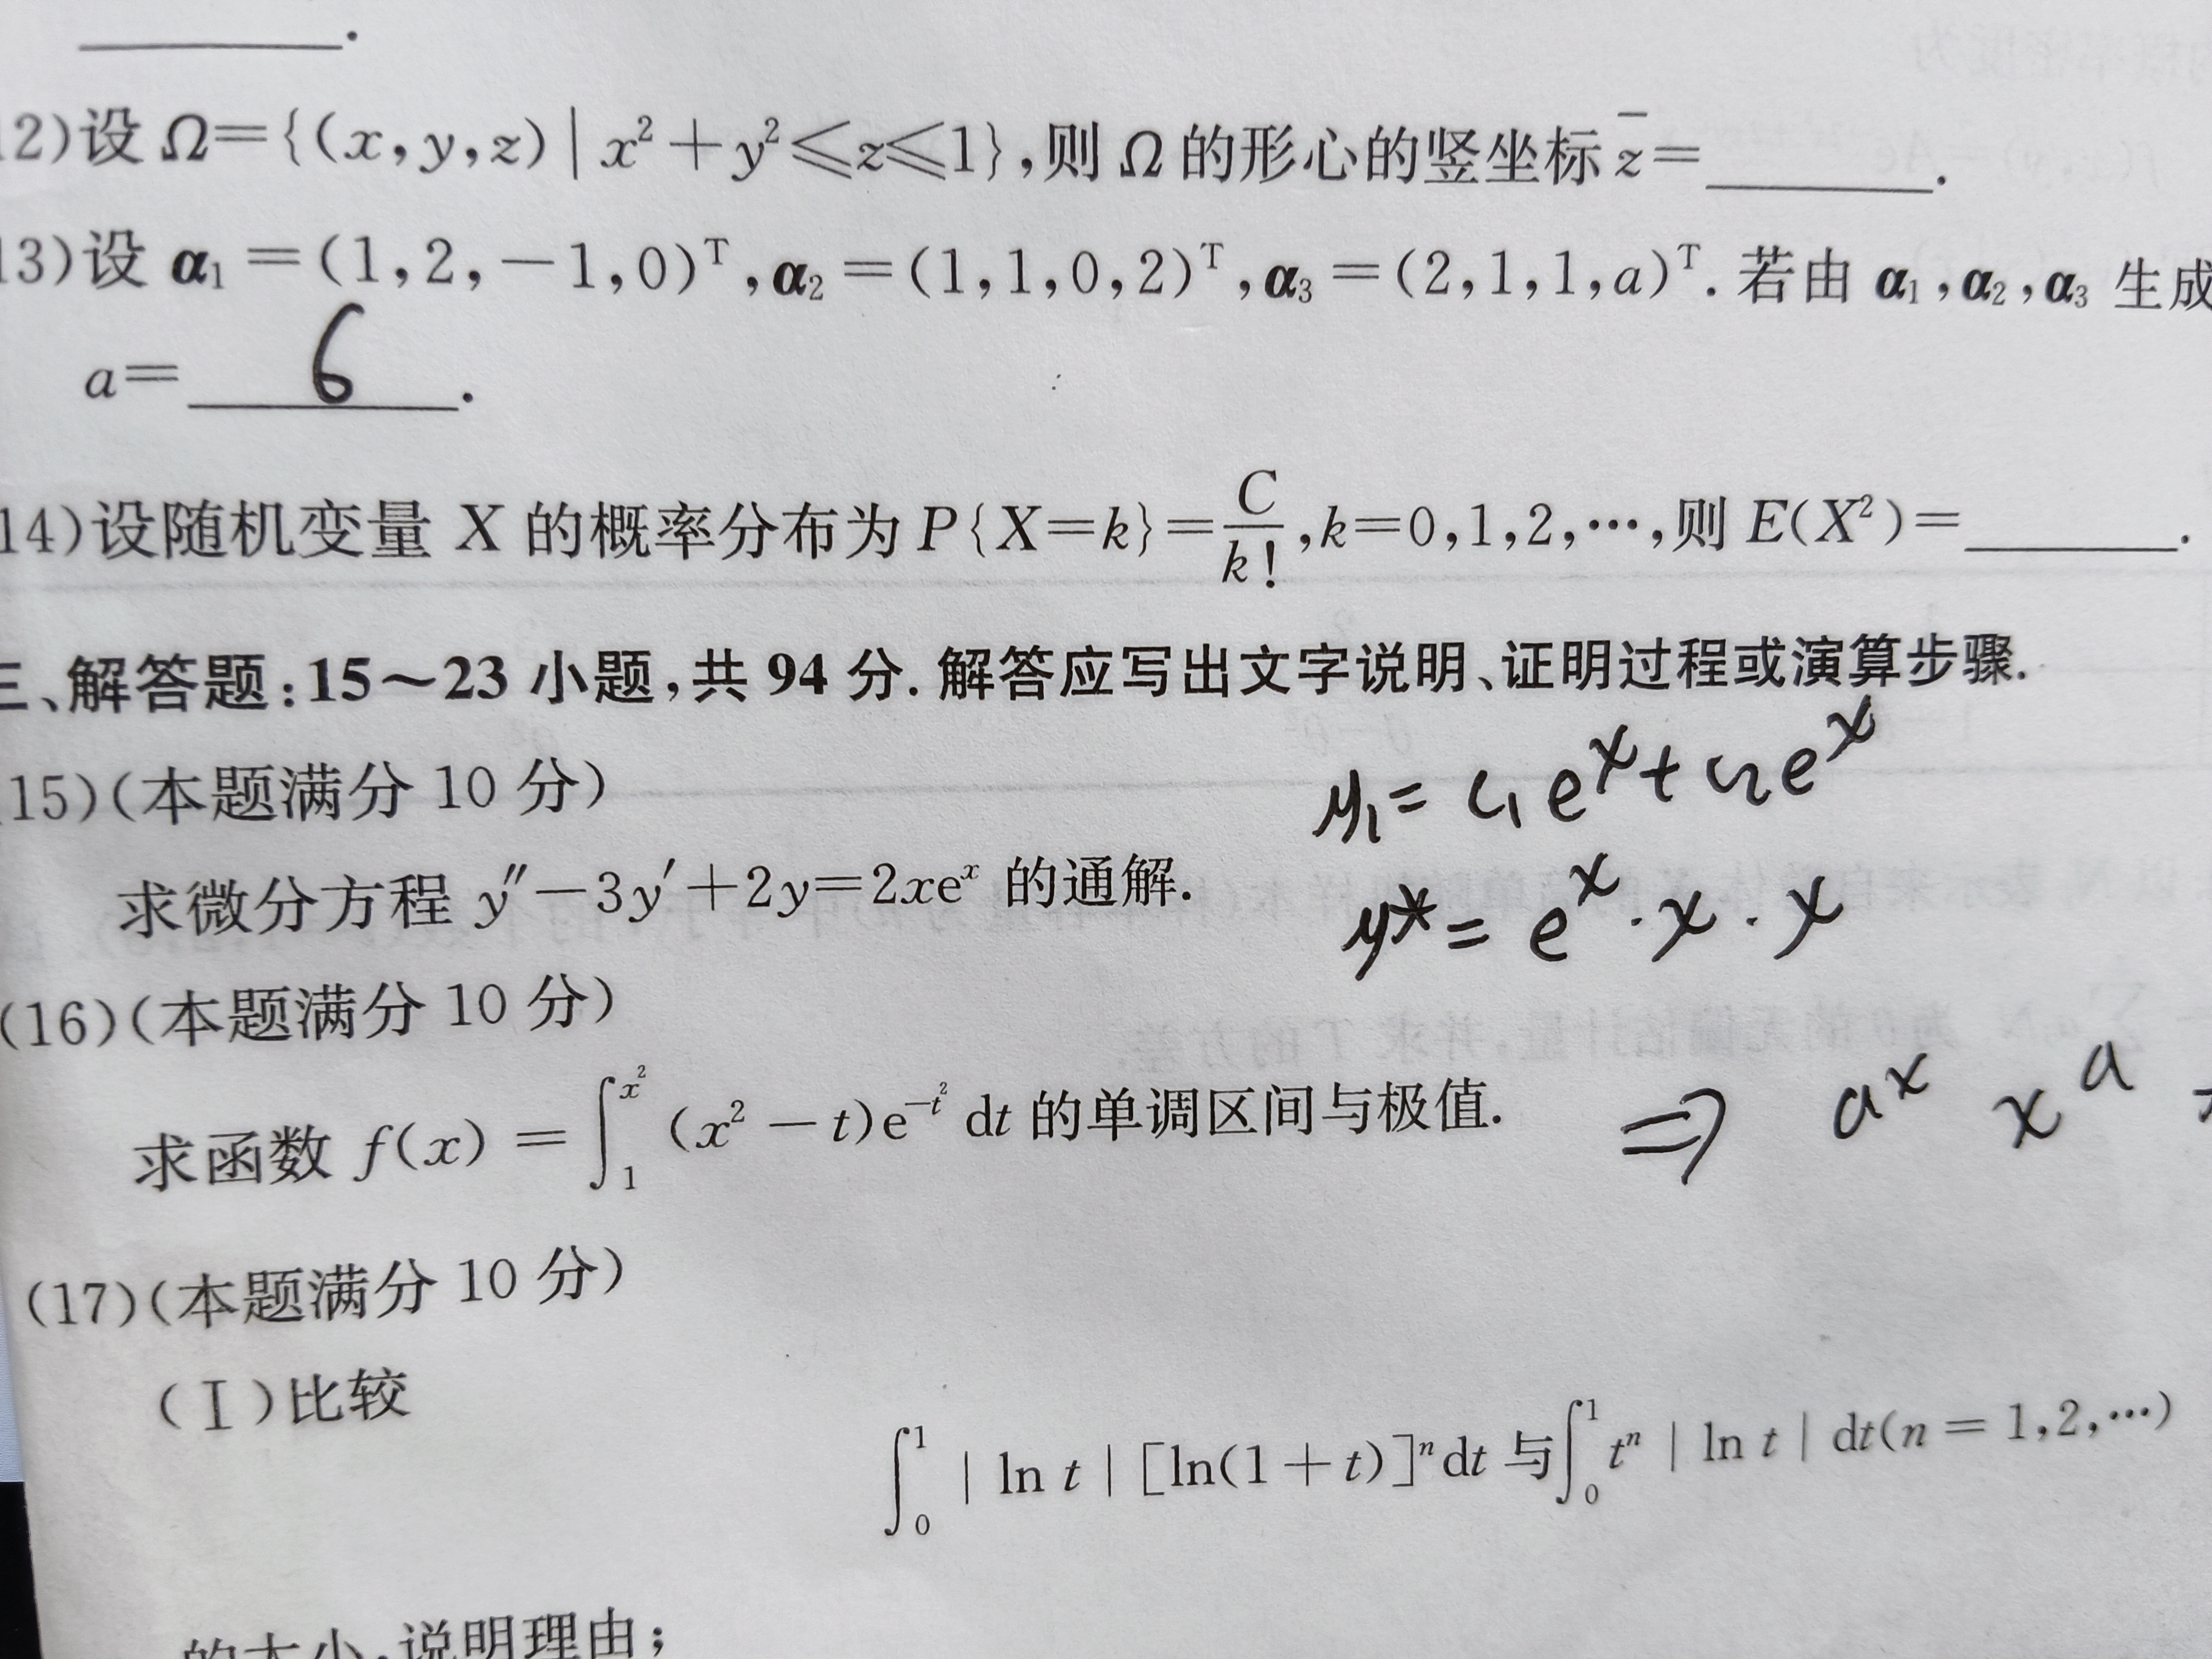 ________.
12)设 Ω={(x,y,z)|x²+y²≤z≤1},则 Ω 的形心的竖坐标 z̄=________.
13)设 α₁=(1,2,-1,0)ᵀ,α₂=(1,1,0,2)ᵀ,α₃=(2,1,1,a)ᵀ.若由 α₁,α₂,α₃ 生成
a= 6 .
14)设随机变量 X 的概率分布为 P{X=k}=C/k!,k=0,1,2,…,则 E(X²)=________.
三、解答题:15～23 小题,共 94 分.解答应写出文字说明、证明过程或演算步骤.
15)(本题满分 10 分)
y₁= c₁eˣ+c₂eˣ
求微分方程 y″-3y′+2y=2xeˣ 的通解.
y*= eˣ·x·x
(16)(本题满分 10 分)
求函数 f(x)=∫₁^{x²}(x²-t)e^{-t²}dt 的单调区间与极值.
⇒ aˣ xᵃ
(17)(本题满分 10 分)
(Ⅰ)比较
∫₀¹|ln t|[ln(1+t)]ⁿdt 与∫₀¹tⁿ|ln t|dt(n=1,2,…)
的大小,说明理由;